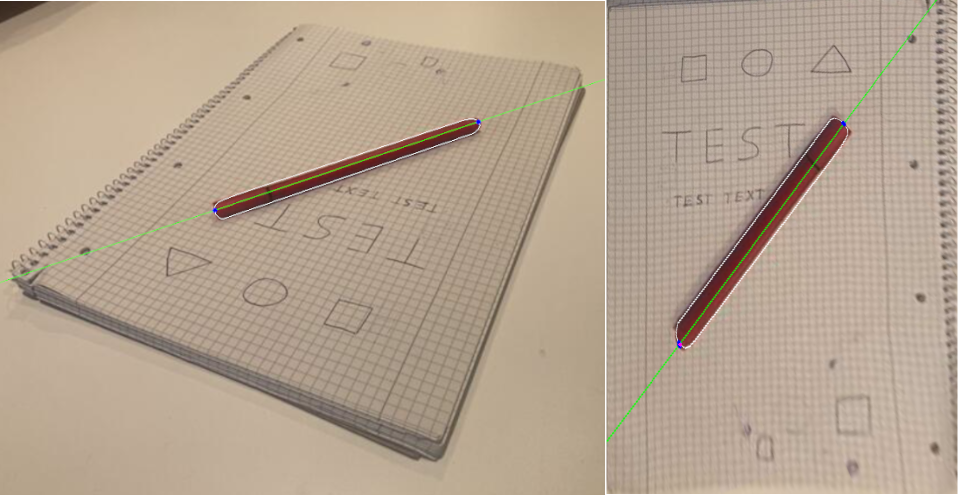 TEST
TEST TEXT
TEST
TEST TEXT